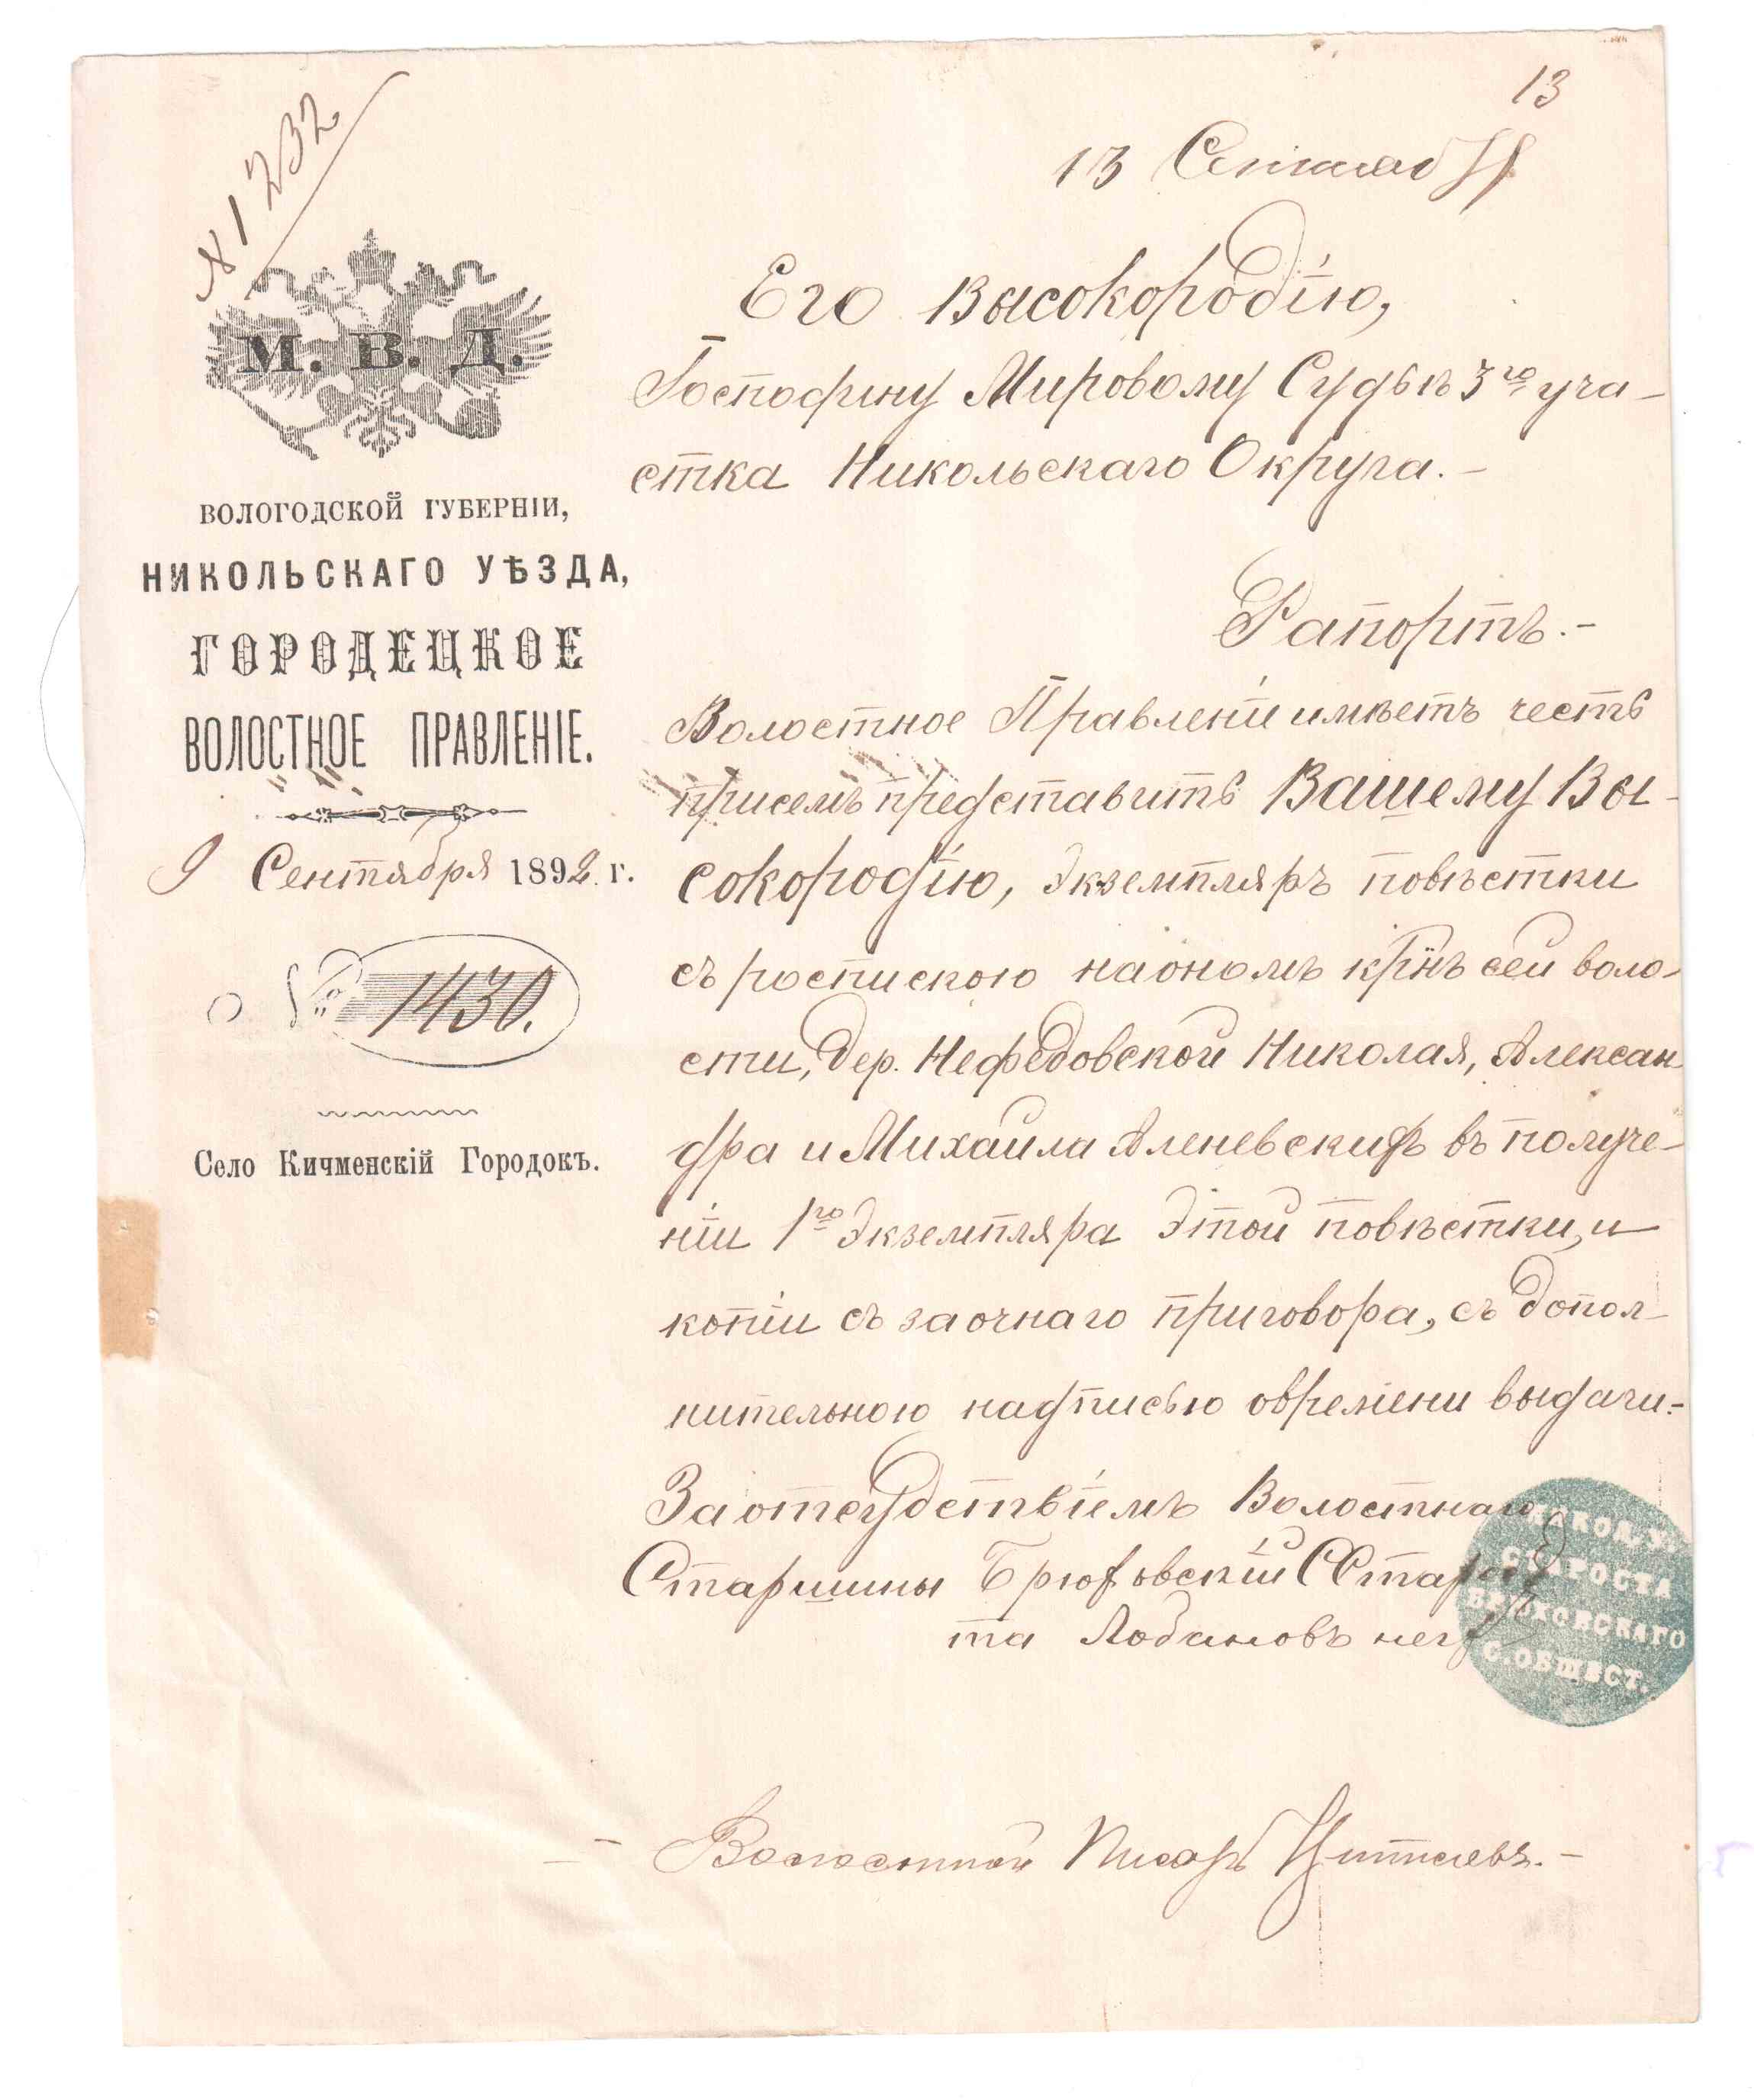 13
№ 1232
13 Сентяб
М. В. Д.
ВОЛОГОДСКОЙ ГУБЕРНІИ,
НИКОЛЬСКАГО УѢЗДА,
ГОРОДЕЦКОЕ
ВОЛОСТНОЕ ПРАВЛЕНІЕ.
9 Сентября 1892 г.
№ 1430.
Село Кичменскій Городокъ.
Его Высокородію,
Господину Мировому Судьѣ 3го уча-
стка Никольскаго Округа.-
Рапортъ.-
Волостное Правленіе имѣетъ честь
присемъ представить Вашему Вы-
сокородію, экземпляръ повѣстки
съ роспискою наономъ крнъ сей воло-
сти, дер. Нефедовской Николая, Алексан
дра и Михаила Аленевскихъ въ получе-
ніи 1го экземпляра этой повѣстки, и
копіи съ заочнаго приговора, съ допол-
нительною надписью овремени выдачи.-
Заотсудствіемъ Волостнаго
Старшины Староста
Лобановъ
НИКОЛ. У.
СТАРОСТА
ВРАКОВСКАГО
С. ОБЩЕСТ.
Волостной Писарь